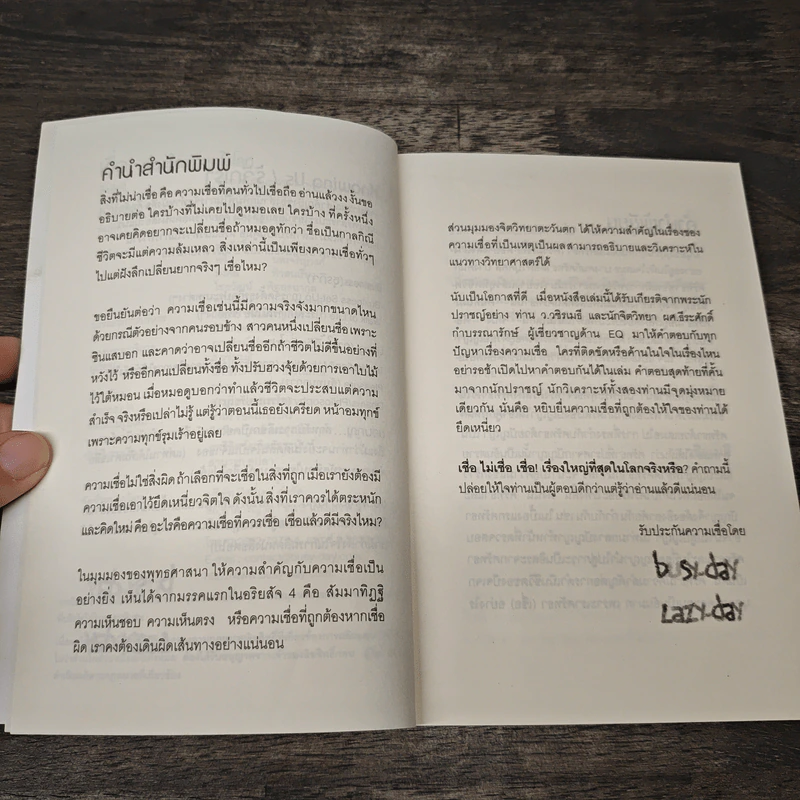 คำนำสำนักพิมพ์
สิ่งที่ไม่น่าเชื่อ คือ ความเชื่อที่คนทั่วไปเชื่อถือ อ่านแล้วงง งั้นขอ
อธิบายต่อ ใครบ้างที่ไม่เคยไปดูหมอเลย ใครบ้าง ที่ครั้งหนึ่ง
อาจเคยคิดอยากจะเปลี่ยนชื่อถ้าหมอดูทักว่า ชื่อเป็นกาลกิณี
ชีวิตจะมีแต่ความล้มเหลว สิ่งเหล่านี้เป็นเพียงความเชื่อทั่วๆ
ไปแต่ฝังลึกเปลี่ยนยากจริงๆ เชื่อไหม?
ขอยืนยันต่อว่า ความเชื่อเช่นนี้มีความจริงจังมากขนาดไหน
ด้วยกรณีตัวอย่างจากคนรอบข้าง สาวคนหนึ่งเปลี่ยนชื่อเพราะ
ซินแสบอก และคาดว่าอาจเปลี่ยนชื่ออีกถ้าชีวิตไม่ดีขึ้นอย่างที่
หวังไว้ หรืออีกคนเปลี่ยนทั้งชื่อ ทั้งปรับฮวงจุ้ยด้วยการเอาใบไม้
ไว้ใต้หมอน เมื่อหมอดูบอกว่าทำแล้วชีวิตจะประสบแต่ความ
สำเร็จ จริงหรือเปล่าไม่รู้ แต่รู้ว่าตอนนี้เธอยังเครียด หน้าอมทุกข์
เพราะความทุกข์รุมเร้าอยู่เลย
ความเชื่อไม่ใช่สิ่งผิด ถ้าเลือกที่จะเชื่อในสิ่งที่ถูก เมื่อเรายังต้องมี
ความเชื่อเอาไว้ยึดเหนี่ยวจิตใจ ดังนั้น สิ่งที่เราควรได้ตระหนัก
และคิดใหม่ คือ อะไรคือความเชื่อที่ควรเชื่อ เชื่อแล้วดีมีจริงไหม?
ในมุมมองของพุทธศาสนา ให้ความสำคัญกับความเชื่อเป็น
อย่างยิ่ง เห็นได้จากมรรคแรกในอริยสัจ 4 คือ สัมมาทิฏฐิ
ความเห็นชอบ ความเห็นตรง หรือความเชื่อที่ถูกต้องหากเชื่อ
ผิด เราคงต้องเดินผิดเส้นทางอย่างแน่นอน
ส่วนมุมมองจิตวิทยาตะวันตก ได้ให้ความสำคัญในเรื่องของ
ความเชื่อที่เป็นเหตุเป็นผลสามารถอธิบายและวิเคราะห์ใน
แนวทางวิทยาศาสตร์ได้
นับเป็นโอกาสที่ดี เมื่อหนังสือเล่มนี้ได้รับเกียรติจากพระนัก
ปราชญ์อย่าง ท่าน ว.วชิรเมธี และนักจิตวิทยา ผศ.ธีระศักดิ์
กำบรรณารักษ์ ผู้เชี่ยวชาญด้าน EQ มาให้คำตอบกับทุก
ปัญหาเรื่องความเชื่อ ใครที่ติดขัดหรือค้านในใจในเรื่องไหน
อย่ารอช้าเปิดไปหาคำตอบกันได้ในเล่ม คำตอบสุดท้ายที่ค้น
มาจากนักปราชญ์ นักวิเคราะห์ทั้งสองท่านมีจุดมุ่งหมาย
เดียวกัน นั่นคือ หยิบยื่นความเชื่อที่ถูกต้องให้ใจของท่านได้
ยึดเหนี่ยว
เชื่อ ไม่เชื่อ เชื่อ! เรื่องใหญ่ที่สุดในโลกจริงหรือ? คำถามนี้
ปล่อยให้ใจท่านเป็นผู้ตอบดีกว่าแต่รู้ว่าอ่านแล้วดีแน่นอน
รับประกันความเชื่อโดย
busy-day
Lazy-day